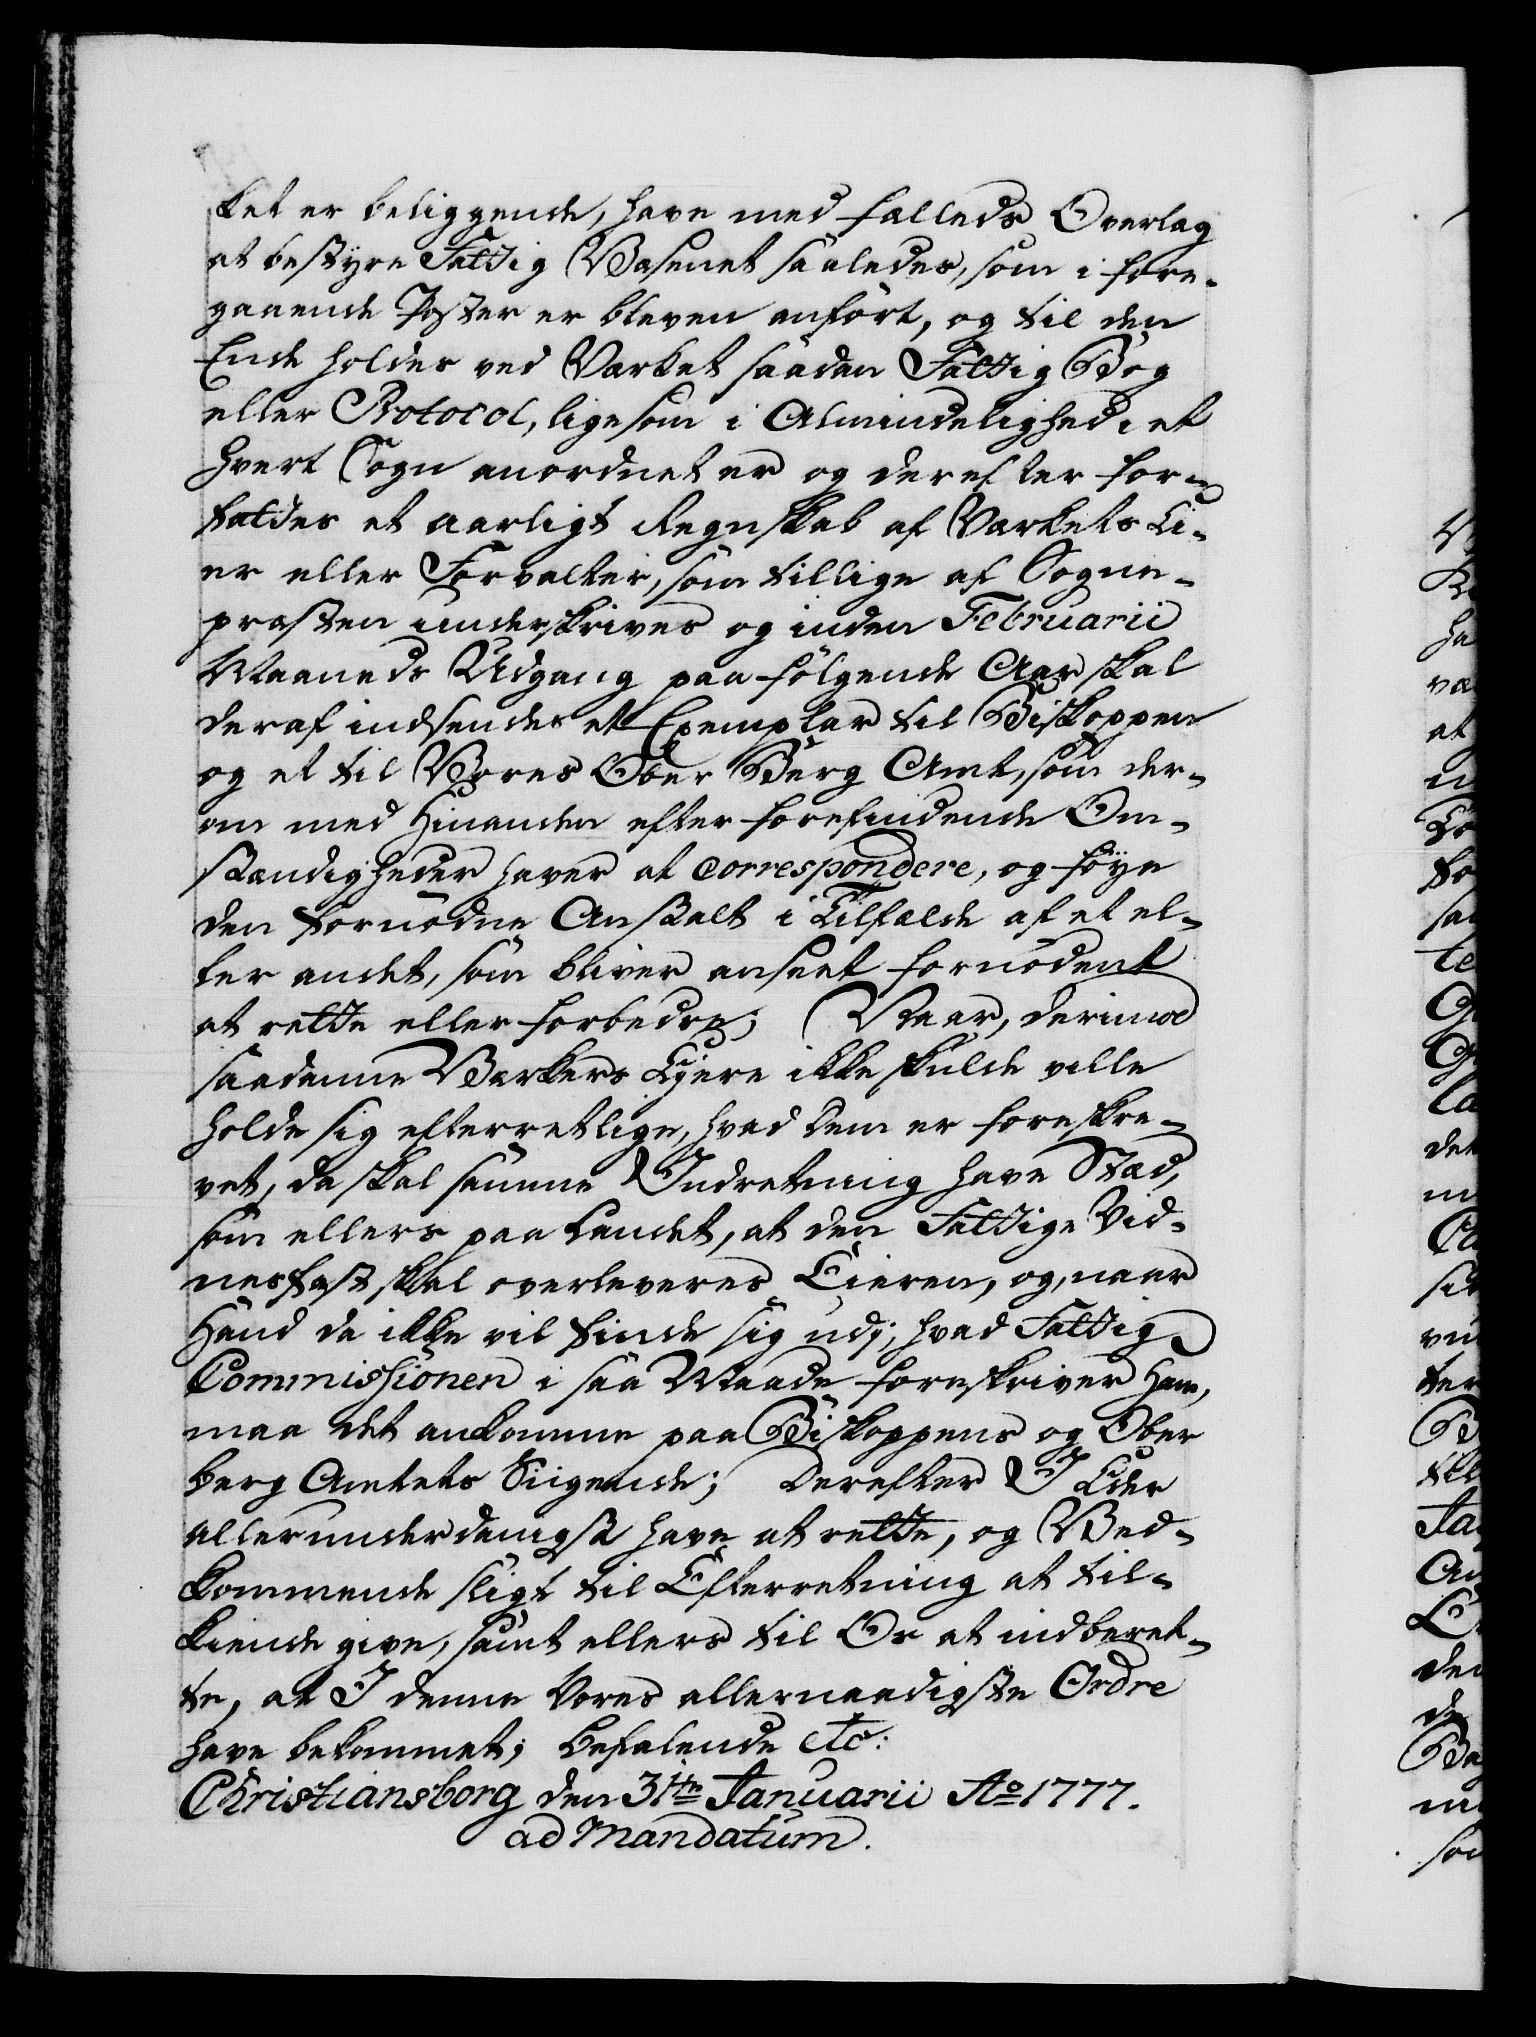 ket er beliggende, have med fælleds Overlæg
at bestyre Fattig Væsenet saaledes, som i fore-
gaaende Poster er bleven anført, og til den
Ende holdes ved Værket saadan Fattig Bog
eller Protocol, ligesom i Almindelighed i et
hvert Sogn anordnet er og derefter for-
fattes et aarligt Regnskab af Værkets Ei-
er eller Forvalter, som tillige af Sogne-
præsten underskrives og inden Februarii
Maaneds Udgang paa følgende Aar skal
deraf indsendes et Exemplar til Biskoppen
og et til Vores Ober Berg Amt, som der-
om med Hinanden efter forefindende Om-
stændigheder haver at correspondere, og føye
den fornødne Anstalt i Tilfælde af et el-
ler andet, som bliver anseet fornødent
at rette eller forbedre; Naar, derimod
saadanne Værkers Ejere ikke skulde ville
holde sig efterretlige, hvad dem er foreskre-
vet, da skal samme Indretning have Stæd,
som ellers paa Landet, at den Fattige Vid-
nesfast skal overleveres Eieren, og, naar
Hand da ikke vil finde sig udj, hvad Fattig
Commissionen i saa Maade foreskriver Ham,
maa det ankomme paa Biskoppens og Ober
berg Amtets Sigende; Derefter I Eder
allerunderdanigst have at rette, og Ved-
kommende sligt til Efterretning at til-
kiende give, samt ellers til Os at indberet-
te, at I denne Vores allernaadigste Ordre
have bekommet; Befalende etc:
Christiansborg den 31te Januarii Ao 1777.
ad Mandatum.